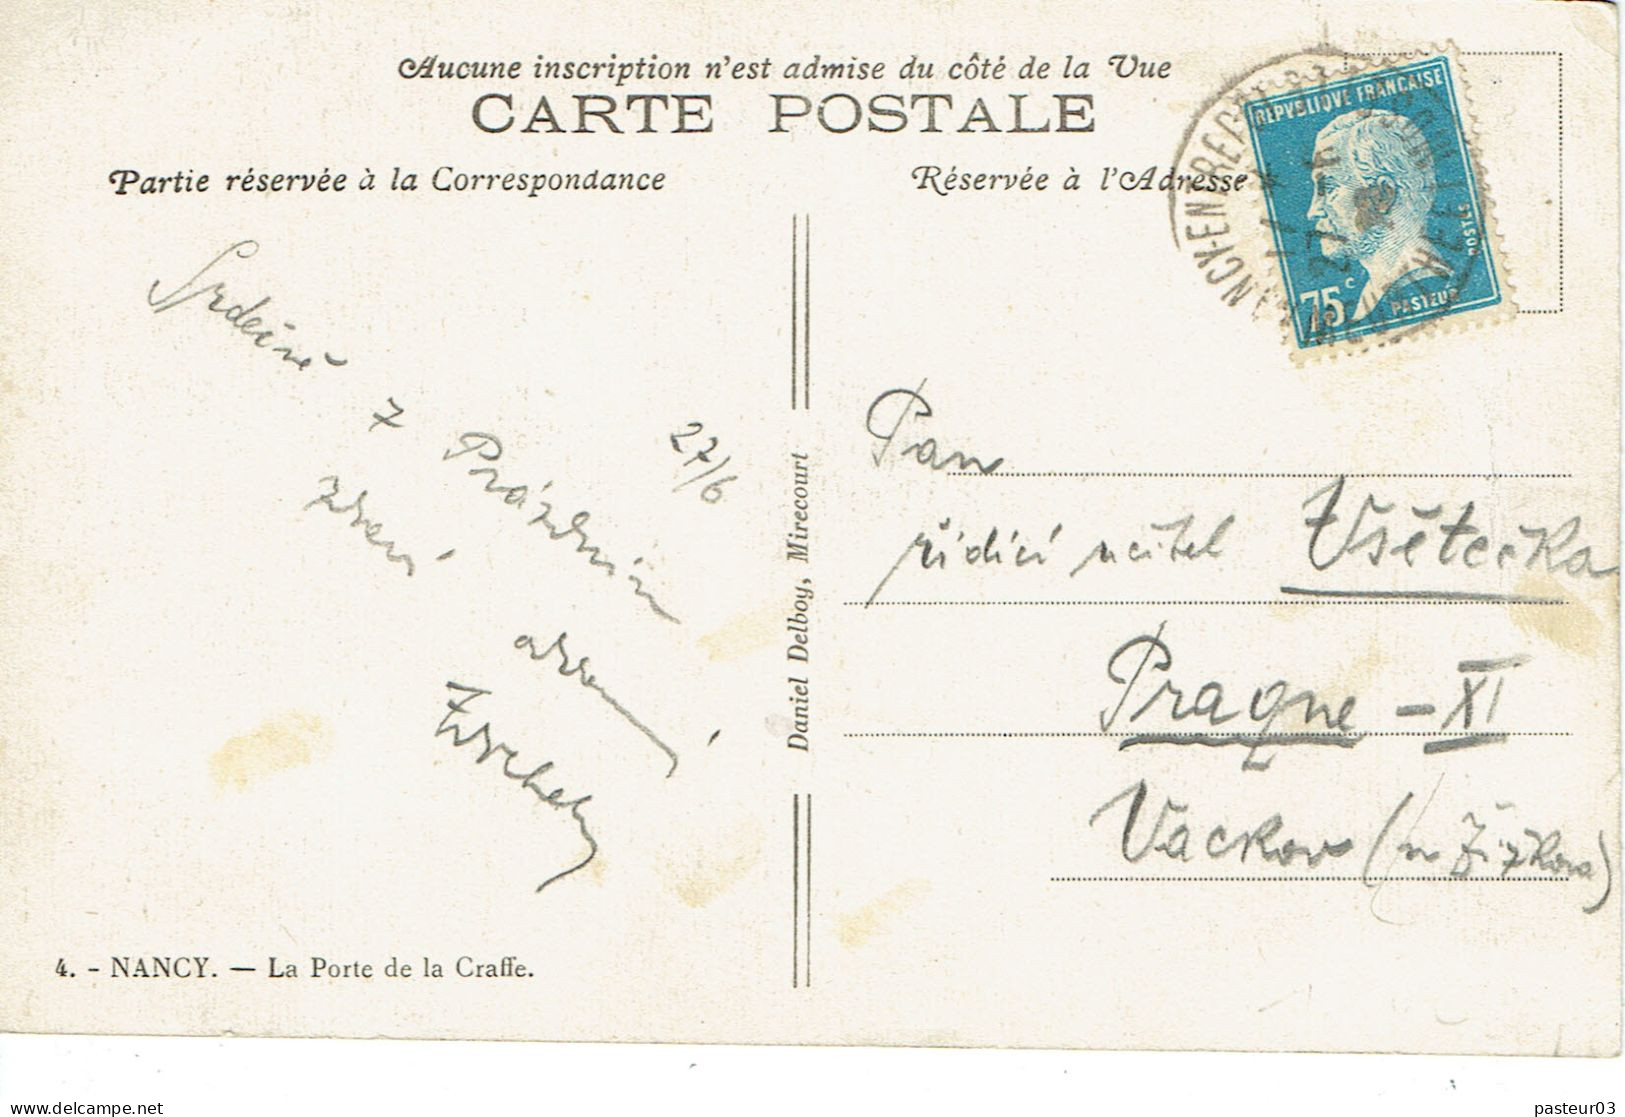 Aucune inscription n'est admise du côté de la Vue
CARTE POSTALE
Partie réservée à la Correspondance
Réservée à l'Adresse
REPVBLIQVE FRANÇAISE
POSTES
75c
PASTEUR
27 - 6
Srdečně
z Prázdnin
27/6
zdraví
Daniel Delboy, Mirecourt
Pan
řídící učitel Všetečka
Prague - XI
Vackov (u Žižkova)
4. - NANCY. — La Porte de la Craffe.
pasteur03